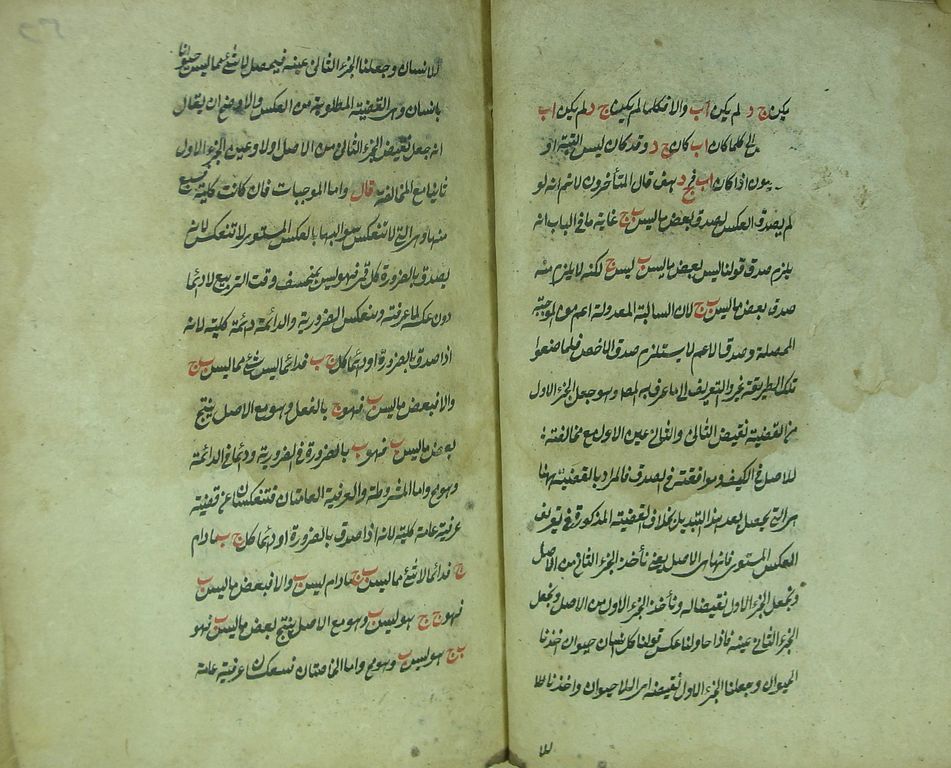 يكن ج د لم يكن اب والا فكلما لم يكن ج د لم يكن اب
كلما كان اب كان ج د وقد كان ليس البتة او
اذا كان اب فج د هف قال المتأخرون لانم انه لو
لم يصدق العكس لصدق بعض ما ليس ب ج غاية ما في الباب انه
يلزم صدق قولنا ليس بعض ما ليس ب ليس ج لكنه لا يلزم منه
صدق بعض ما ليس ب ج لان السالبة المعدولة اعم من الموجبة
المحصلة وصدق الاعم لا يستلزم صدق الاخص فلما ضعوا
تلك الطريقة غيروا التعريف الى ما عرف به المص وهو جعل الجزء الاول
من القضية نقيض الثاني والثاني عين الاول مع مخالفته
للاصل في الكيف وموافقته في الصدق فالمراد بالقضية ههنا
هي التي يحصل بعد هذا التبديل بخلاف القضية المذكورة في تعريف
العكس المستوي فانها هي الاصل يعني نأخذ الجزء الثاني من الاصل
ونجعل الجزء الاول نقيضا له ونأخذ الجزء الاول من الاصل ونجعل
الجزء الثاني عينه فاذا حاولنا عكس قولنا كل انسان حيوان اخذنا
الحيوان وجعلنا الجزء الاول نقيضه اى اللاحيوان واخذنا
للا
للانسان وجعلنا الجزء الثاني عينه فيحصل لا شئ مما ليس حيوانا
بانسان وهى القضية المطلوبة من العكس والاوضح ان يقال
انه جعل نقيض الجزء الثاني من الاصل اولا وعين الجزء الاول
ثانيا مع المخالفة قال واما الموجبات فان كانت كلية فسبع
منها وهى التي لا تنعكس سوالبها بالعكس المستوي لا تنعكس لانه
يصدق بالضرورة كل قمر فهو ليس بمنخسف وقت التربيع لا دائما
دون عكسه لما عرفته وتنعكس الضرورية والدائمة دائمة كلية لانه
اذا صدق بالضرورة او دائما كل ج ب فدائما ليس شئ مما ليس ب ج
والا فبعض ما ليس ب فهو ج بالفعل وهو مع الاصل ينتج
بعض ما ليس ب فهو ب بالضرورة في الضرورية ودائما في الدائمة
وهو مح واما المشروطة والعرفية العامتان فتنعكسان عرفية
عرفية عامة كلية لانه اذا صدق بالضرورة او دائما كل ج ب ما دام
ج فدائما لا شئ مما ليس ب ج ما دام ليس ب والا فبعض ما ليس ب
فهو ج ح هو ليس ب وهو مع الاصل ينتج بعض ما ليس ب فهو
ب ح هو ليس ب وهو مح واما الخاصتان فتنعكسان عرفية عامة